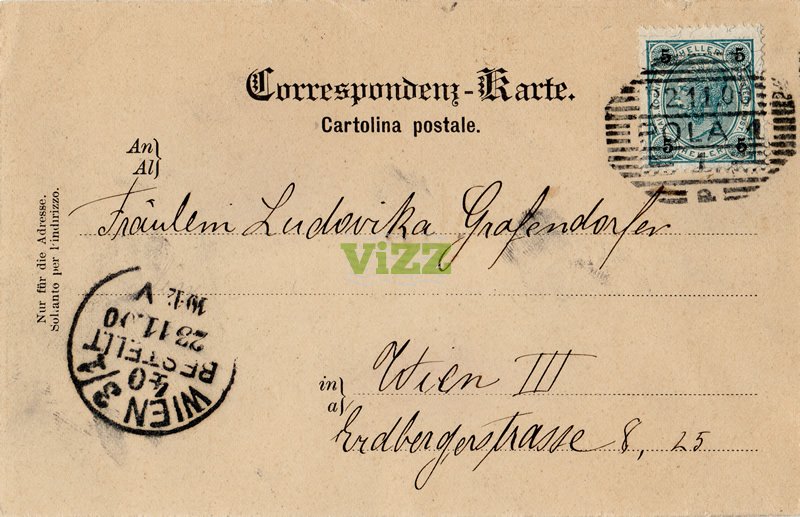 Correspondenz-Karte.
Cartolina postale.
5 HELLER 5
5 HELLER 5
21.11.0
POLA 1
An
Al
Fräulein Ludovika Grafendorfer
ViZZ
Nur für die Adresse.
Sol.anto per l'indirizzo.
WIEN 3/1
40
BESTELLT
23.11.00
V
in
a
Wien III
Erdbergerstrasse 8, 25